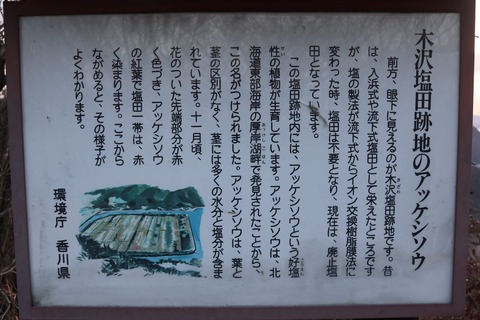 木沢塩田跡地のアッケシソウ
前方、眼下に見えるのが木沢塩田跡地です。昔
は、入浜式や流下式塩田として栄えたところです
が、塩の製法が流下式からイオン交換樹脂膜法に
変わった時、塩田は不要となり、現在は、廃止塩
田となっています。
この塩田跡地内には、アッケシソウという好塩
性の植物が生育しています。アッケシソウは、北
海道東部海岸の厚岸湖畔で発見されたことから、
この名がつけられました。アッケシソウは、葉と
茎の区別がなく、茎には多くの水分と塩分が含ま
れています。十一月頃、
花のついた先端部分が赤
く色づき、アッケシソウ
の紅葉で塩田一帯は、赤
く染まります。ここから
ながめると、その様子が
よくわかります。
環境庁 香川県